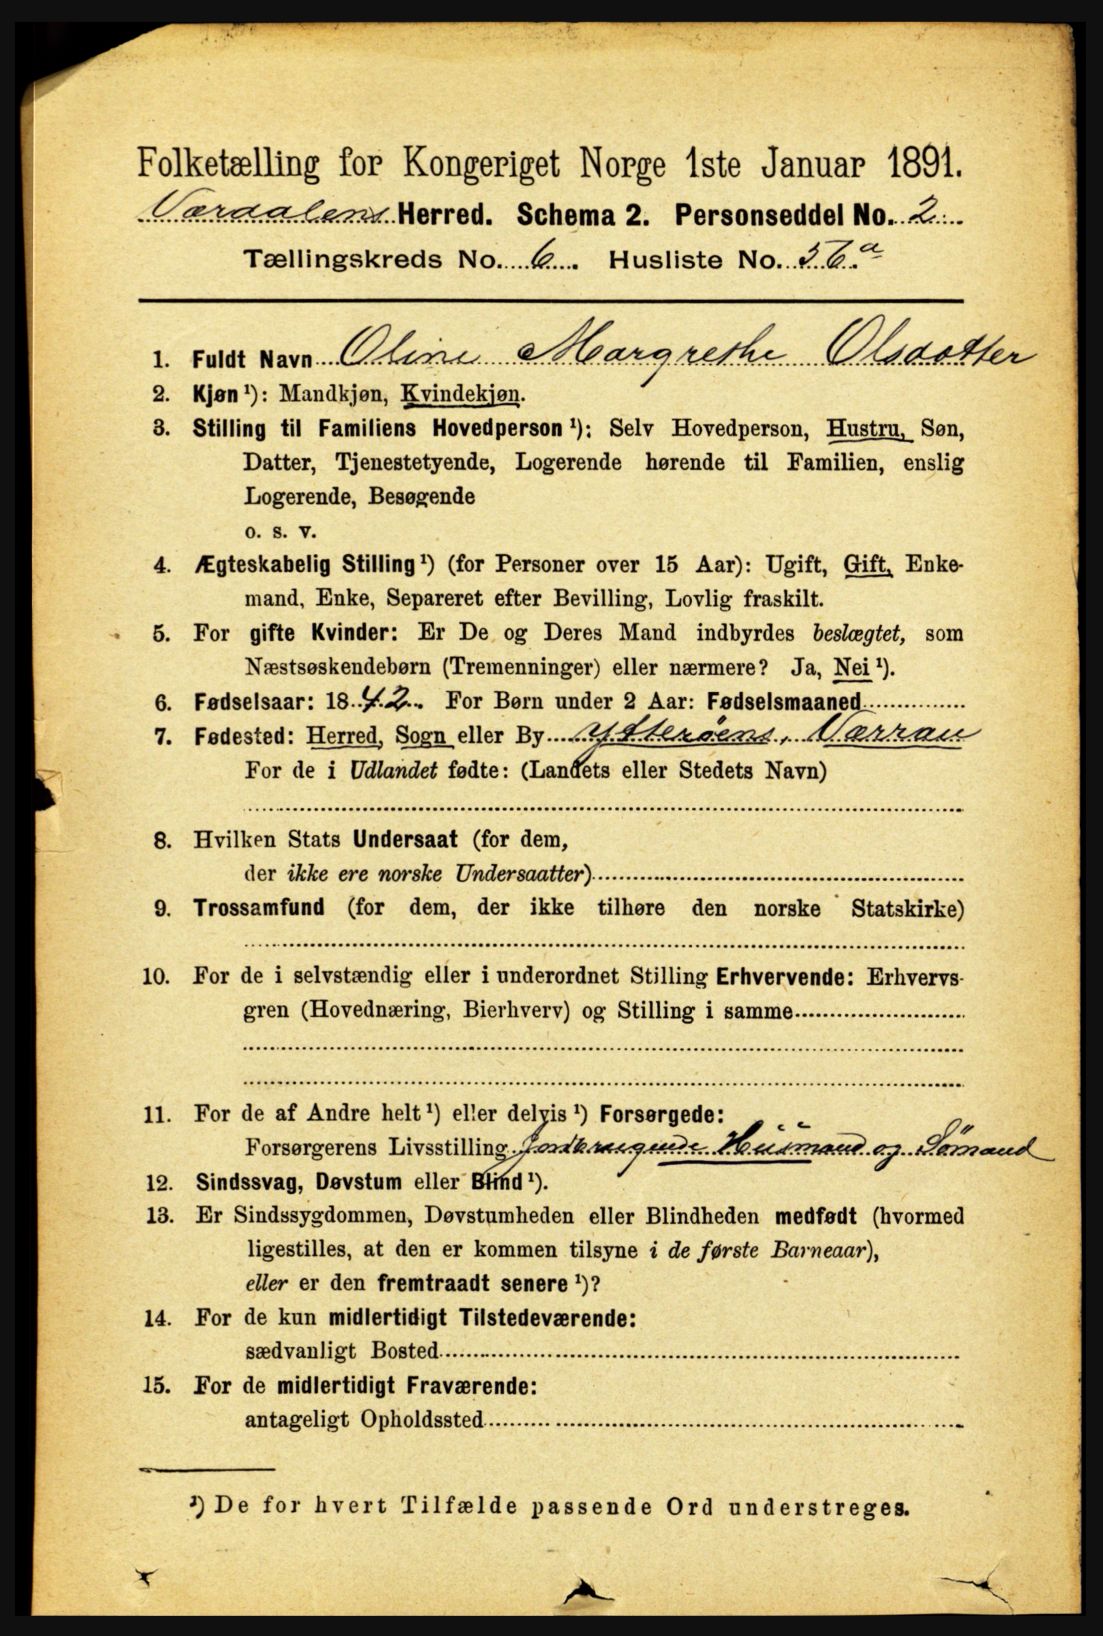 Folketælling for Kongeriget Norge 1ste Januar 1891.
Værdalens Herred. Schema 2. Personseddel No. 2
Tællingskreds No. 6. Husliste No. 56.a
1. Fuldt Navn Oline Margrethe Olsdatter
2. Kjøn¹): Mandkjøn, Kvindekjøn.
3. Stilling til Familiens Hovedperson¹): Selv Hovedperson, Hustru, Søn,
Datter, Tjenestetyende, Logerende hørende til Familien, enslig
Logerende, Besøgende
o. s. v.
4. Ægteskabelig Stilling¹) (for Personer over 15 Aar): Ugift, Gift, Enke-
mand, Enke, Separeret efter Bevilling, Lovlig fraskilt.
5. For gifte Kvinder: Er De og Deres Mand indbyrdes beslægtet, som
Næstsøskendebørn (Tremenninger) eller nærmere? Ja, Nei¹).
6. Fødselsaar: 1842. For Børn under 2 Aar: Fødselsmaaned
7. Fødested: Herred, Sogn eller By Ytterøens, Værran
For de i Udlandet fødte: (Landets eller Stedets Navn)
8. Hvilken Stats Undersaat (for dem,
der ikke ere norske Undersaatter)
9. Trossamfund (for dem, der ikke tilhøre den norske Statskirke)
10. For de i selvstændig eller i underordnet Stilling Erhvervende: Erhvervs-
gren (Hovednæring, Bierhverv) og Stilling i samme
11. For de af Andre helt¹) eller delvis¹) Forsørgede:
Forsørgerens Livsstilling Jordbrugende Husmand og Sømand
12. Sindssvag, Døvstum eller Blind¹).
13. Er Sindssygdommen, Døvstumheden eller Blindheden medfødt (hvormed
ligestilles, at den er kommen tilsyne i de første Barneaar),
eller er den fremtraadt senere¹)?
14. For de kun midlertidigt Tilstedeværende:
sædvanligt Bosted
15. For de midlertidigt Fraværende:
antageligt Opholdssted
¹) De for hvert Tilfælde passende Ord understreges.